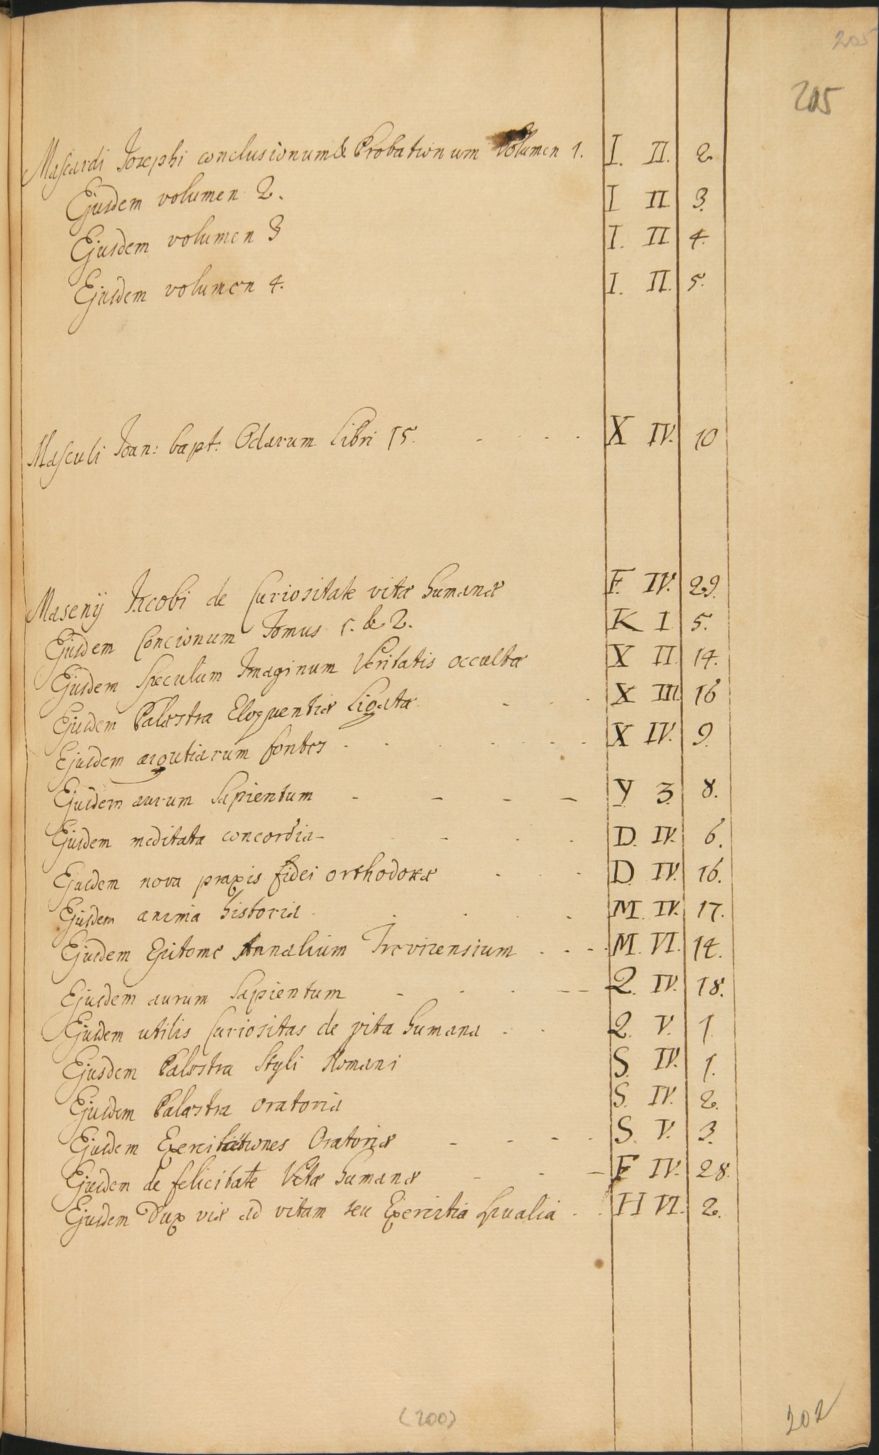 205
205
Mascardi Josephi conclusionum & Probationum Volumen 1. I. II. 2
Ejusdem volumen 2. I II 3.
Ejusdem volumen 3 I. II 4.
Ejusdem volumen 4. I. II. 5.
Masculi Joan: bapt: Odarum Libri 15. X IV. 10
Masenij Jacobi de Curiositate vitæ humanæ F. IV. 29.
Ejusdem Concionum Tomus 1. & 2. K I 5.
Ejusdem Speculum Imaginum Veritatis occultæ X II 14.
Ejusdem Palæstra Eloquentiæ Ligata X III 16
Ejusdem argutiarum fontes X IV. 9.
Ejusdem aurum Sapientum Y 3. 8.
Ejusdem meditata concordia D. IV. 6.
Ejusdem nova praxis fidei orthodoxæ D IV. 16.
Ejusdem anima historiæ M. IV. 17.
Ejusdem Epitome Annalium Trevirensium M. VI. 14.
Ejusdem aurum Sapientum Q. IV. 18.
Ejusdem utilis Curiositas de vita humana Q V. 1
Ejusdem Palæstra Styli Romani S. IV. 1.
Ejusdem Palæstra oratoria S. IV. 2.
Ejusdem Exercitationes Oratoriæ S. V. 3.
Ejusdem de felicitate Vitæ humanæ F IV. 28.
Ejusdem Dux viæ ad vitam seu Exercitia spualia H VI. 2.
(200)
202